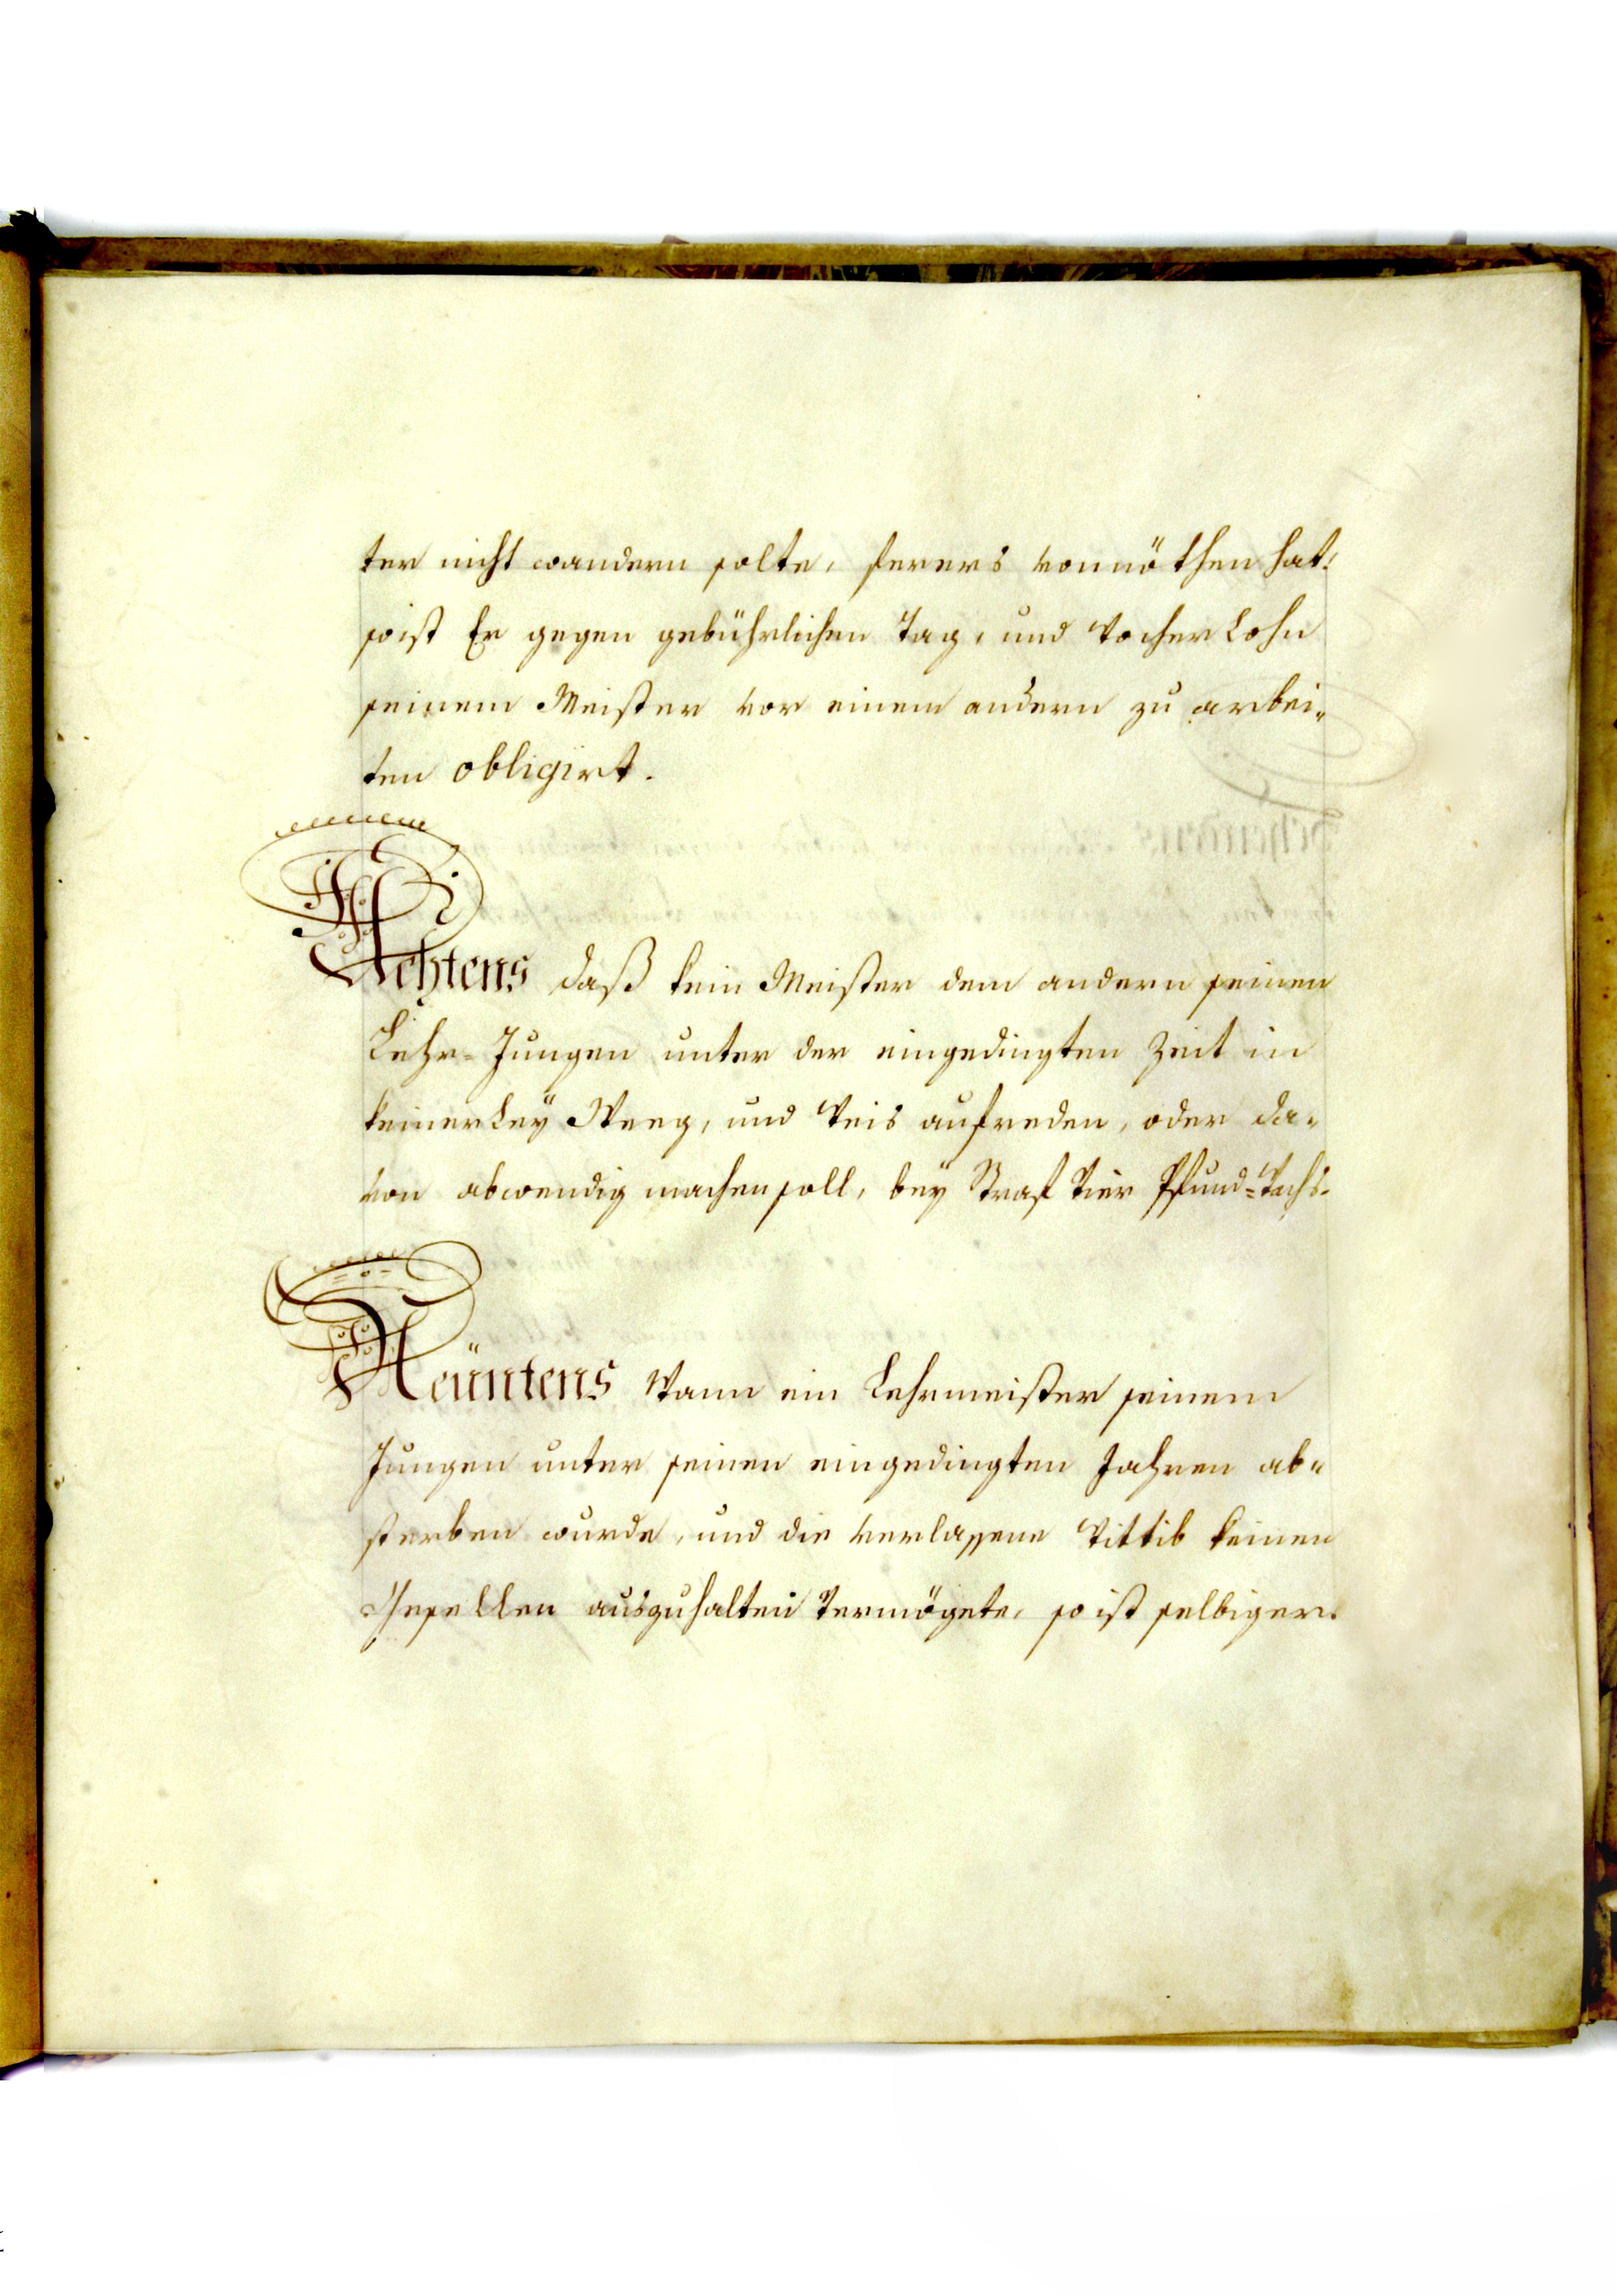 ter nicht wandern solte, ferers vonnöthen hat,
so ist Er gegen gebührlichen Tag, und Wocher Lohn
seinem Meister vor einem andern zu arbei„
ten obligirt.
Achtens daß kein Meister dem andern seinen
Lehr-Jungen unter der eingedingten Zeit in
keinerley Weeg, und Weis aufreden, oder da„
von abwendig machen soll, bey Straf Vier Pfund=Wachs.
Neüntens Wann ein Lehrmeister seinem
Jungen unter seinen eingedingten Jahren ab„
sterben wurde, und die verlassene Wittib keinen
Gesellen auszuhalten Vermögete, so ist selbiger